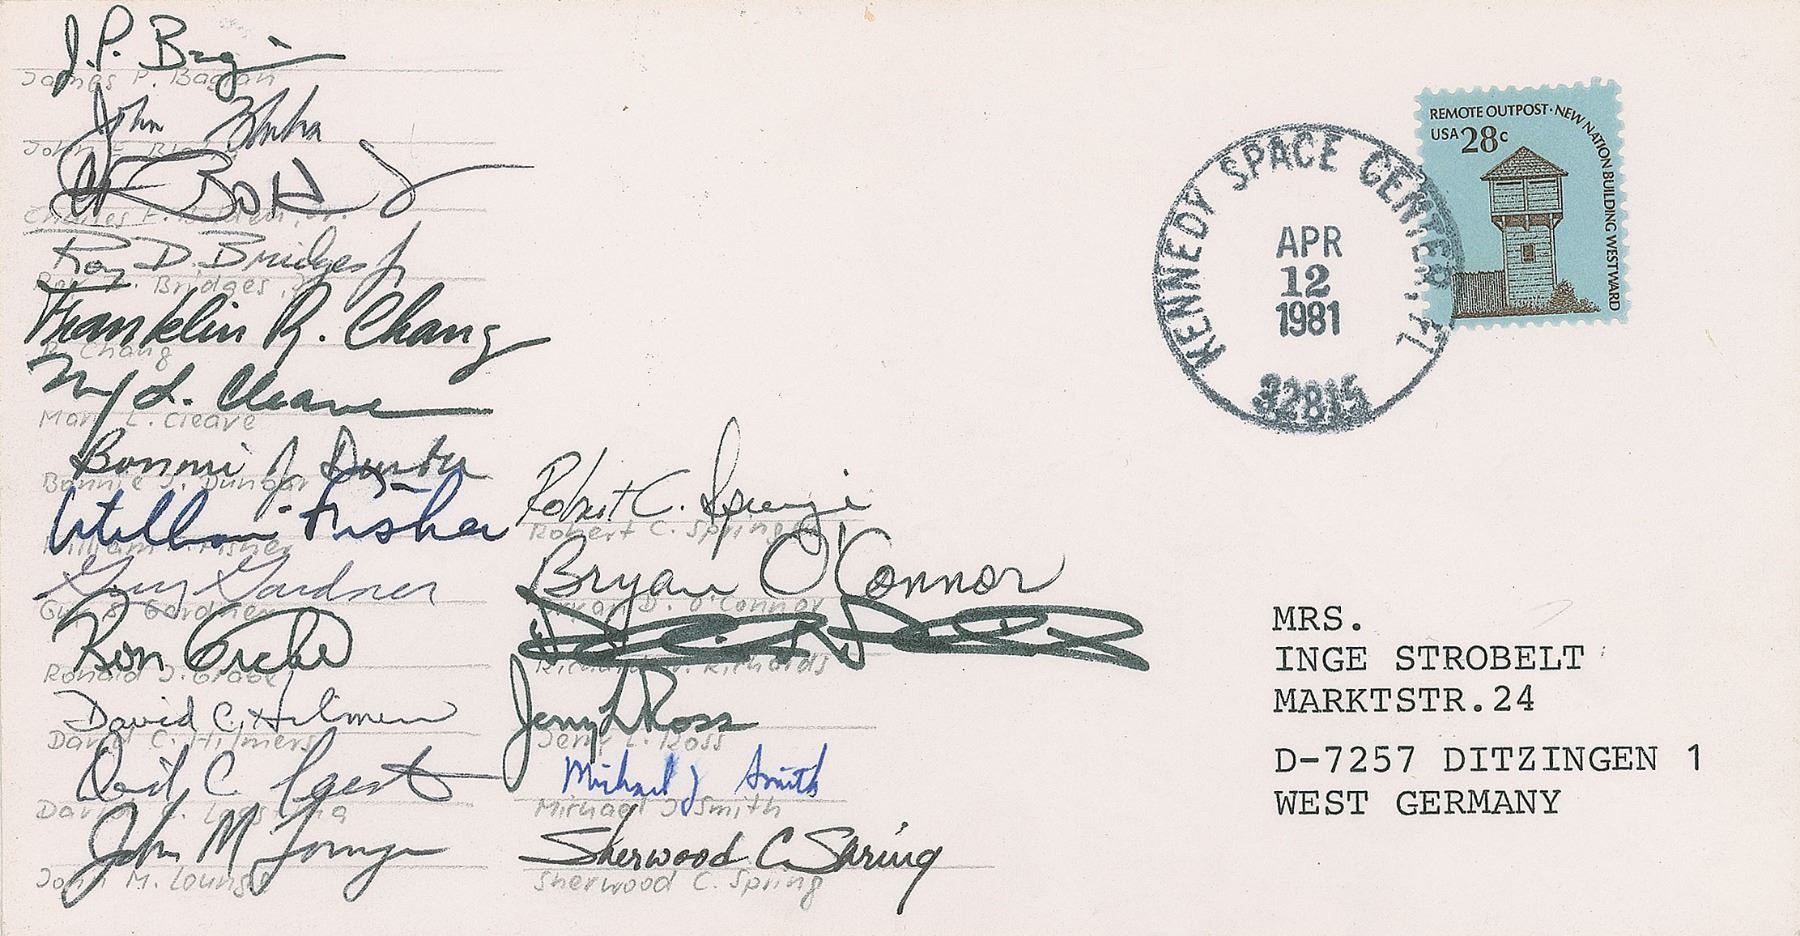 J.P. Bagian
James P. Bagian
John Blaha
John E. Blaha
Charles F. Bolden, Jr.
Roy D. Bridges Jr
Roy D. Bridges, Jr.
Franklin R. Chang
F. R. Chang
Mary L. Cleave
Mary L. Cleave
Bonnie J Dunbar
Bonnie J. Dunbar
William Fisher
William F. Fisher
Guy Gardner
Guy S. Gardner
Ron Grabe
Ronald J. Grabe
David C. Hilmers
David C. Hilmers
David C Leestma
David C. Leestma
John M Lounge
John M. Lounge
Robert C. Springer
Robert C. Springer
Bryan O'Connor
Bryan D. O'Connor
Richard N. Richards
Jerry L Ross
Jerry L. Ross
Michael J Smith
Michael J Smith
Sherwood C. Spring
Sherwood C. Spring
KENNEDY SPACE CENTER, FL
APR
12
1981
32815
REMOTE OUTPOST · NEW NATION BUILDING WESTWARD
USA 28c
MRS.
INGE STROBELT
MARKTSTR.24
D-7257 DITZINGEN 1
WEST GERMANY